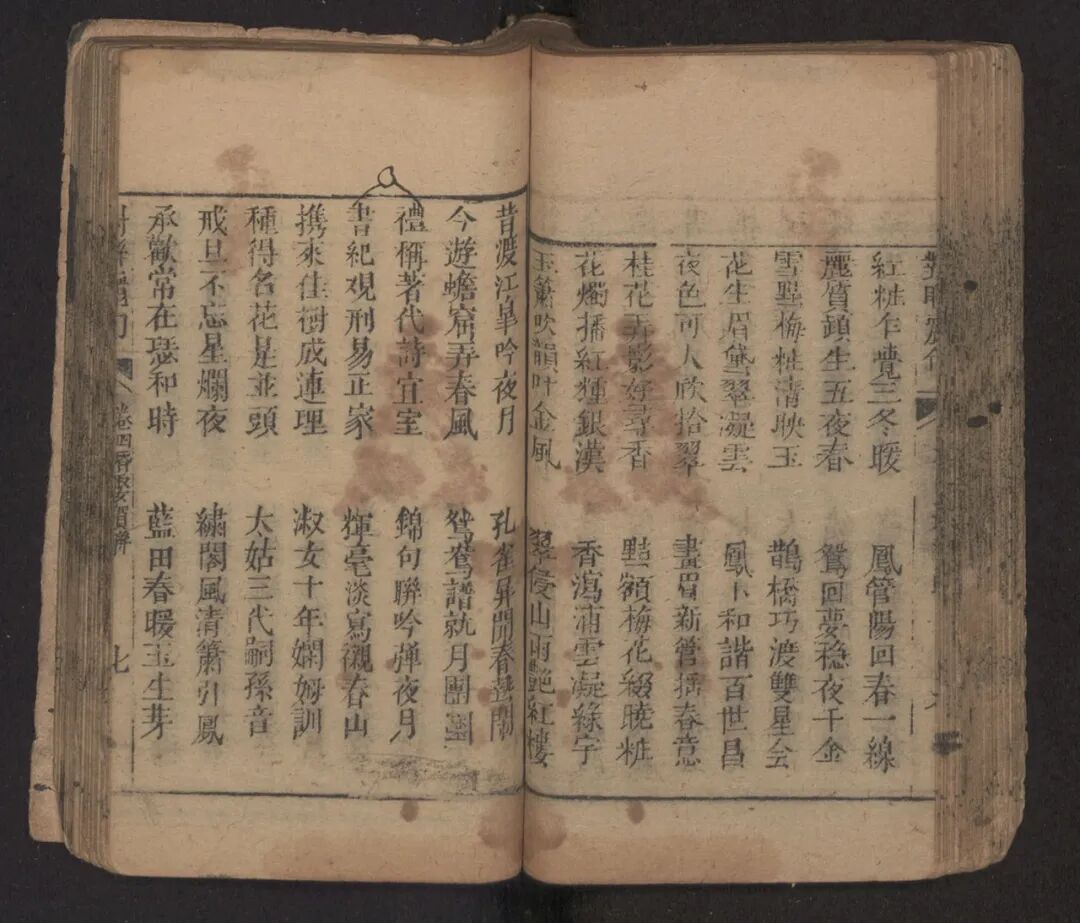 紅粧乍覺三冬暖 鳳管陽回春一線
麗質頓生五夜春 鴛回夢稳夜千金
雪墅梅粧清映玉 鵲橋巧渡雙星会
花生眉黛翠凝雲 鳳卜和諧百世昌
夜色可人欣拾翠 畫眉新管描春意
桂花弄影好尋香 點額梅花綴曉粧
花燭搖紅輝銀漢 香瀉浦雲凝綠字
玉簫吹韻叶金風 翠侵山雨艷紅樓
昔渡江皐吟夜月 孔雀屏開春
今遊蟾窟弄春風 鴛鴦譜就月團圞
禮稱著代詩宜室 錦句聯吟弹夜月
書紀观刑易正家 輝毫淡寫襯春山
携來佳樹成連理 淑女十年嫻姆訓
種得名花是並頭 太姑三代嗣孫音
戒旦不忘星爛夜 繡閣風清簫引鳳
承歡常在瑟和時 藍田春暖玉生芽
卷四婚娶賀聯 七